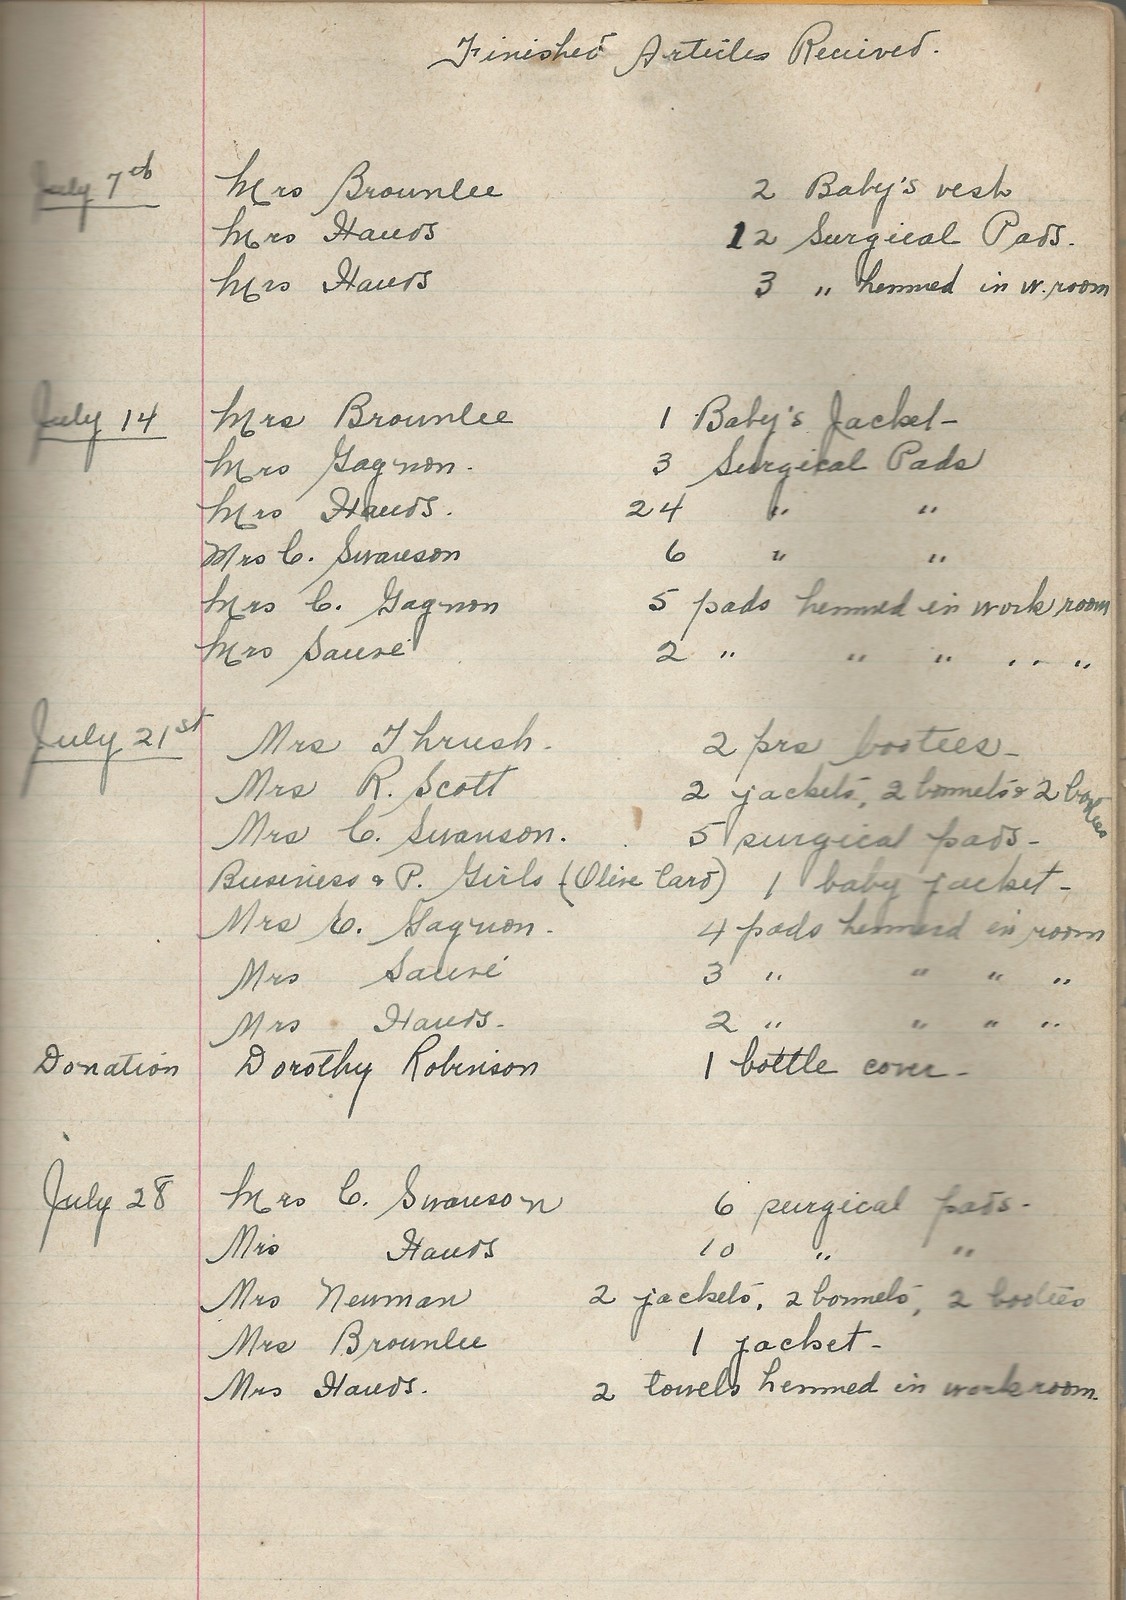 Finished Articles Received.
July 7th Mrs Brounlee 2 Baby's vests
Mrs Hands 12 Surgical Pads.
Mrs Hands 3 " hemmed in w. room
July 14 Mrs Brounlee 1 Baby's Jacket -
Mrs Gagnon. 3 Surgical Pads
Mrs Hands. 24 " "
Mrs C. Swanson 6 " "
Mrs C. Gagnon 5 pads hemmed in work room
Mrs Sauvé 2 " " " " "
July 21st Mrs Thrush. 2 prs bootees -
Mrs R. Scott 2 jackets, 2 bonnets & 2 bootees
Mrs C. Swanson. 5 surgical pads -
Business & P. Girls (Olive Card) 1 baby jacket -
Mrs C. Gagnon. 4 pads hemmed in room
Mrs Sauvé 3 " " " "
Mrs Hands. 2 " " " "
Donation Dorothy Robinson 1 bottle cover -
July 28 Mrs C. Swanson 6 surgical pads -
Mrs Hands 10 " "
Mrs Newman 2 jackets, 2 bonnets, 2 bootees
Mrs Brounlee 1 jacket -
Mrs Hands. 2 towels hemmed in work room.